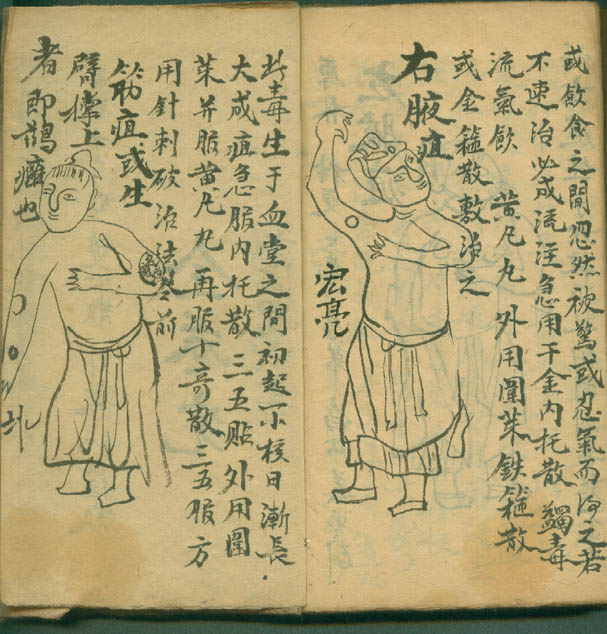 或飲食之間忽然被驚或忍氣而得之若
不速治必成流注急用千金內托散 蠲毒
流氣飲 黄凡丸 外用圍茱鉄箍散
或金箍散敷治之
右腋疽
宏亮
此毒生于血堂之間初起一小核日漸長
大成疽急服內托散 三五貼外用圍
茱并服黄凡丸 再服十奇散三五服方
用針刺破治法仝前
筋疽或生
臂膊上
者即鵲癰也